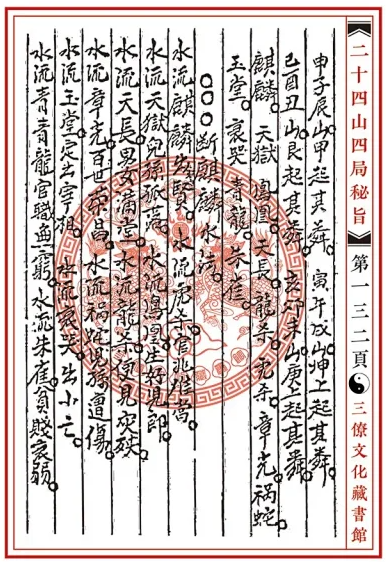 二十四山四局秘旨
第一三二頁
三僚文化藏書館
申子辰山甲起其粦。寅午戌山坤上起其粦。
巳酉丑山艮起其粦。亥卯未山庚上起其粦。
麒麟。天獄。鳳凰。天長。龍杀。光杀。章光。祸蛇。
玉堂。哀哭。青龍。朱雀。
○○○断麒麟水法。
水流麒麟生賢。水流虎杀官
水流天獄兒孫孤。水流鳳凰生好兒郎
水流天長男女滿堂。水流龍杀便見灾殃
水流章光百世荣昌。水流祸蛇兒孫遭傷。
水流玉堂定出宰相。水流哀哭出小亡。
水流青青龍官職無窮。水流朱雀貧賤衰弱。